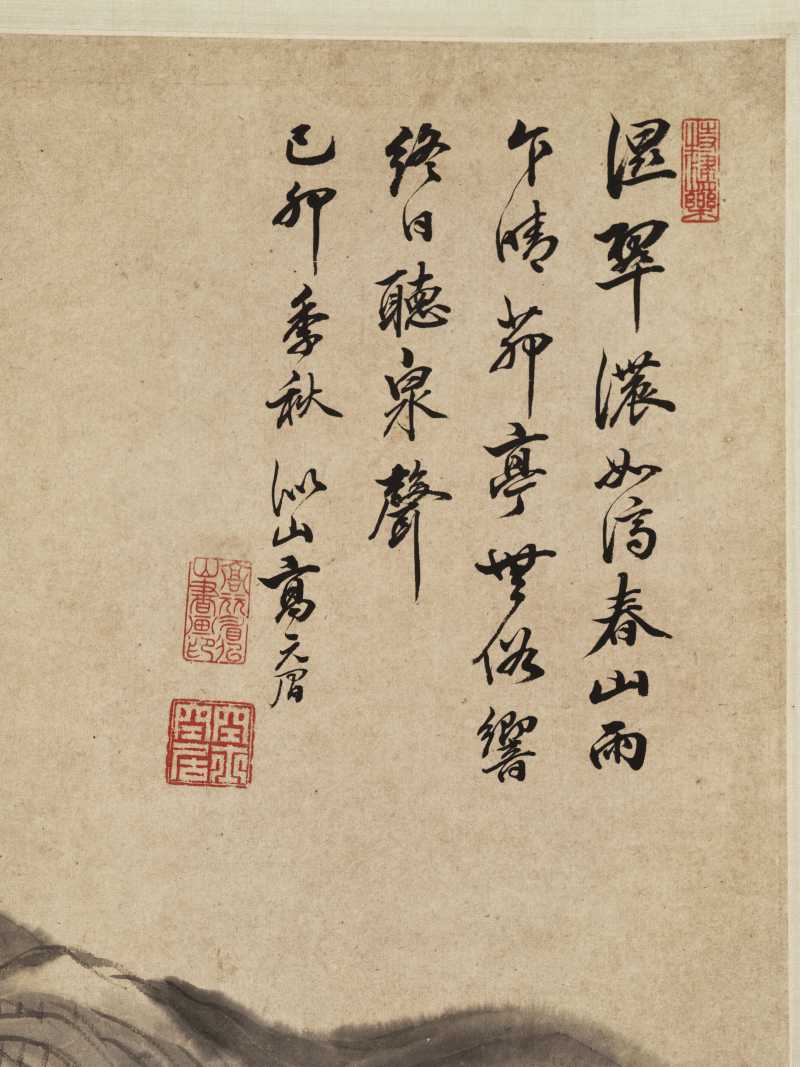 湿翠濃如滴春山雨
乍晴茆亭無俗響
終日聽泉聲
己卯季秋 山高元眉